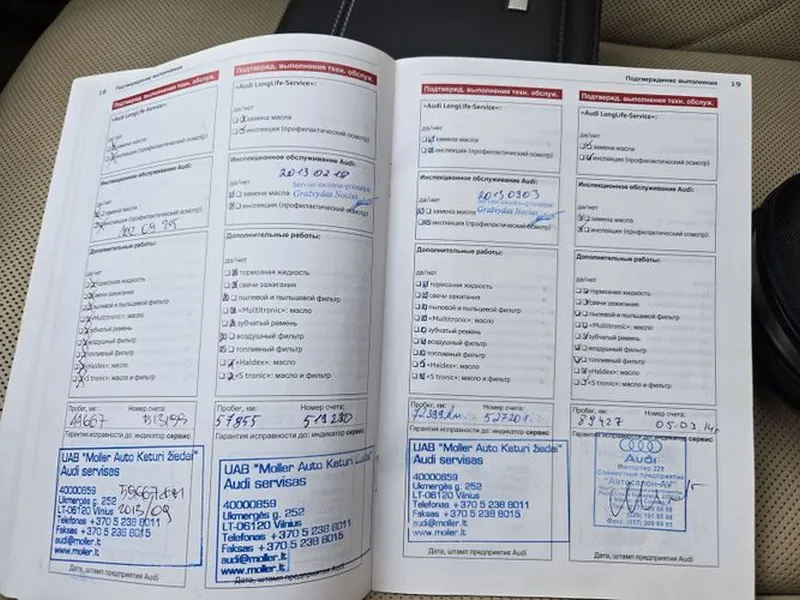 18
Подтверждение выполнения
Подтвержд. выполнения техн. обслуж.
«Audi LongLife-Service»:
да/нет
замена масла
инспекция (профилактический осмотр)
Инспекционное обслуживание Audi:
да/нет
замена масла
инспекция (профилактический осмотр)
Дополнительные работы:
да/нет
тормозная жидкость
свечи зажигания
пылевой и пыльцевой фильтр
«Multitronic»: масло
зубчатый ремень
воздушный фильтр
топливный фильтр
«Haldex»: масло
«S tronic»: масло и фильтр
Пробег, км:
Номер счета:
Гарантия исправности до: индикатор сервис
UAB "Moller Auto Keturi žiedai"
Audi servisas
40000859
Ukmergės g. 252
LT-06120 Vilnius
Telefonas +370 5 238 8011
Faksas +370 5 238 8015
audi@moller.lt
www.moller.lt
2013/09
Дата, штамп предприятия Audi
Подтвержд. выполнения техн. обслуж.
«Audi LongLife-Service»:
да/нет
замена масла
инспекция (профилактический осмотр)
Инспекционное обслуживание Audi:
2013 02 18
да/нет
замена масла
Gražvydas Nocius
инспекция (профилактический осмотр)
Дополнительные работы:
да/нет
тормозная жидкость
свечи зажигания
пылевой и пыльцевой фильтр
«Multitronic»: масло
зубчатый ремень
воздушный фильтр
топливный фильтр
«Haldex»: масло
«S tronic»: масло и фильтр
Пробег, км:
Номер счета:
57855
519280
Гарантия исправности до: индикатор сервис
UAB "Moller Auto Keturi
Audi servisas
40000859
Ukmergės g. 252
LT-06120 Vilnius
Telefonas +370 5 238 8011
Faksas +370 5 238 8015
audi@moller.lt
www.moller.lt
Дата, штамп предприятия Audi
Подтверждение выполнения
19
Подтвержд. выполнения техн. обслуж.
«Audi LongLife-Service»:
да/нет
замена масла
инспекция (профилактический осмотр)
Инспекционное обслуживание Audi:
2013 0903
да/нет
замена масла
Gražvydas Nocius
инспекция (профилактический осмотр)
Дополнительные работы:
да/нет
тормозная жидкость
свечи зажигания
пылевой и пыльцевой фильтр
«Multitronic»: масло
зубчатый ремень
воздушный фильтр
топливный фильтр
«Haldex»: масло
«S tronic»: масло и фильтр
Пробег, км:
Номер счета:
Гарантия исправности до: индикатор сервис
UAB "Moller Auto Keturi žiedai"
Audi servisas
40000859
Ukmergės g. 252
LT-06120 Vilnius
Telefonas +370 5 238 8011
Faksas +370 5 238 8015
audi@moller.lt
www.moller.lt
Дата, штамп предприятия Audi
Подтвержд. выполнения техн. обслуж.
«Audi LongLife-Service»:
да/нет
замена масла
инспекция (профилактический осмотр)
Инспекционное обслуживание Audi:
да/нет
замена масла
инспекция (профилактический осмотр)
Дополнительные работы:
да/нет
тормозная жидкость
свечи зажигания
пылевой и пыльцевой фильтр
«Multitronic»: масло
зубчатый ремень
воздушный фильтр
топливный фильтр
«Haldex»: масло
«S tronic»: масло и фильтр
Пробег, км:
Номер счета:
89427
05.03.14
Гарантия исправности до: индикатор сервис
Audi
Импортер 229
Совместное предприятие
"Автосалон-AV"
Дата, штамп предприятия Audi